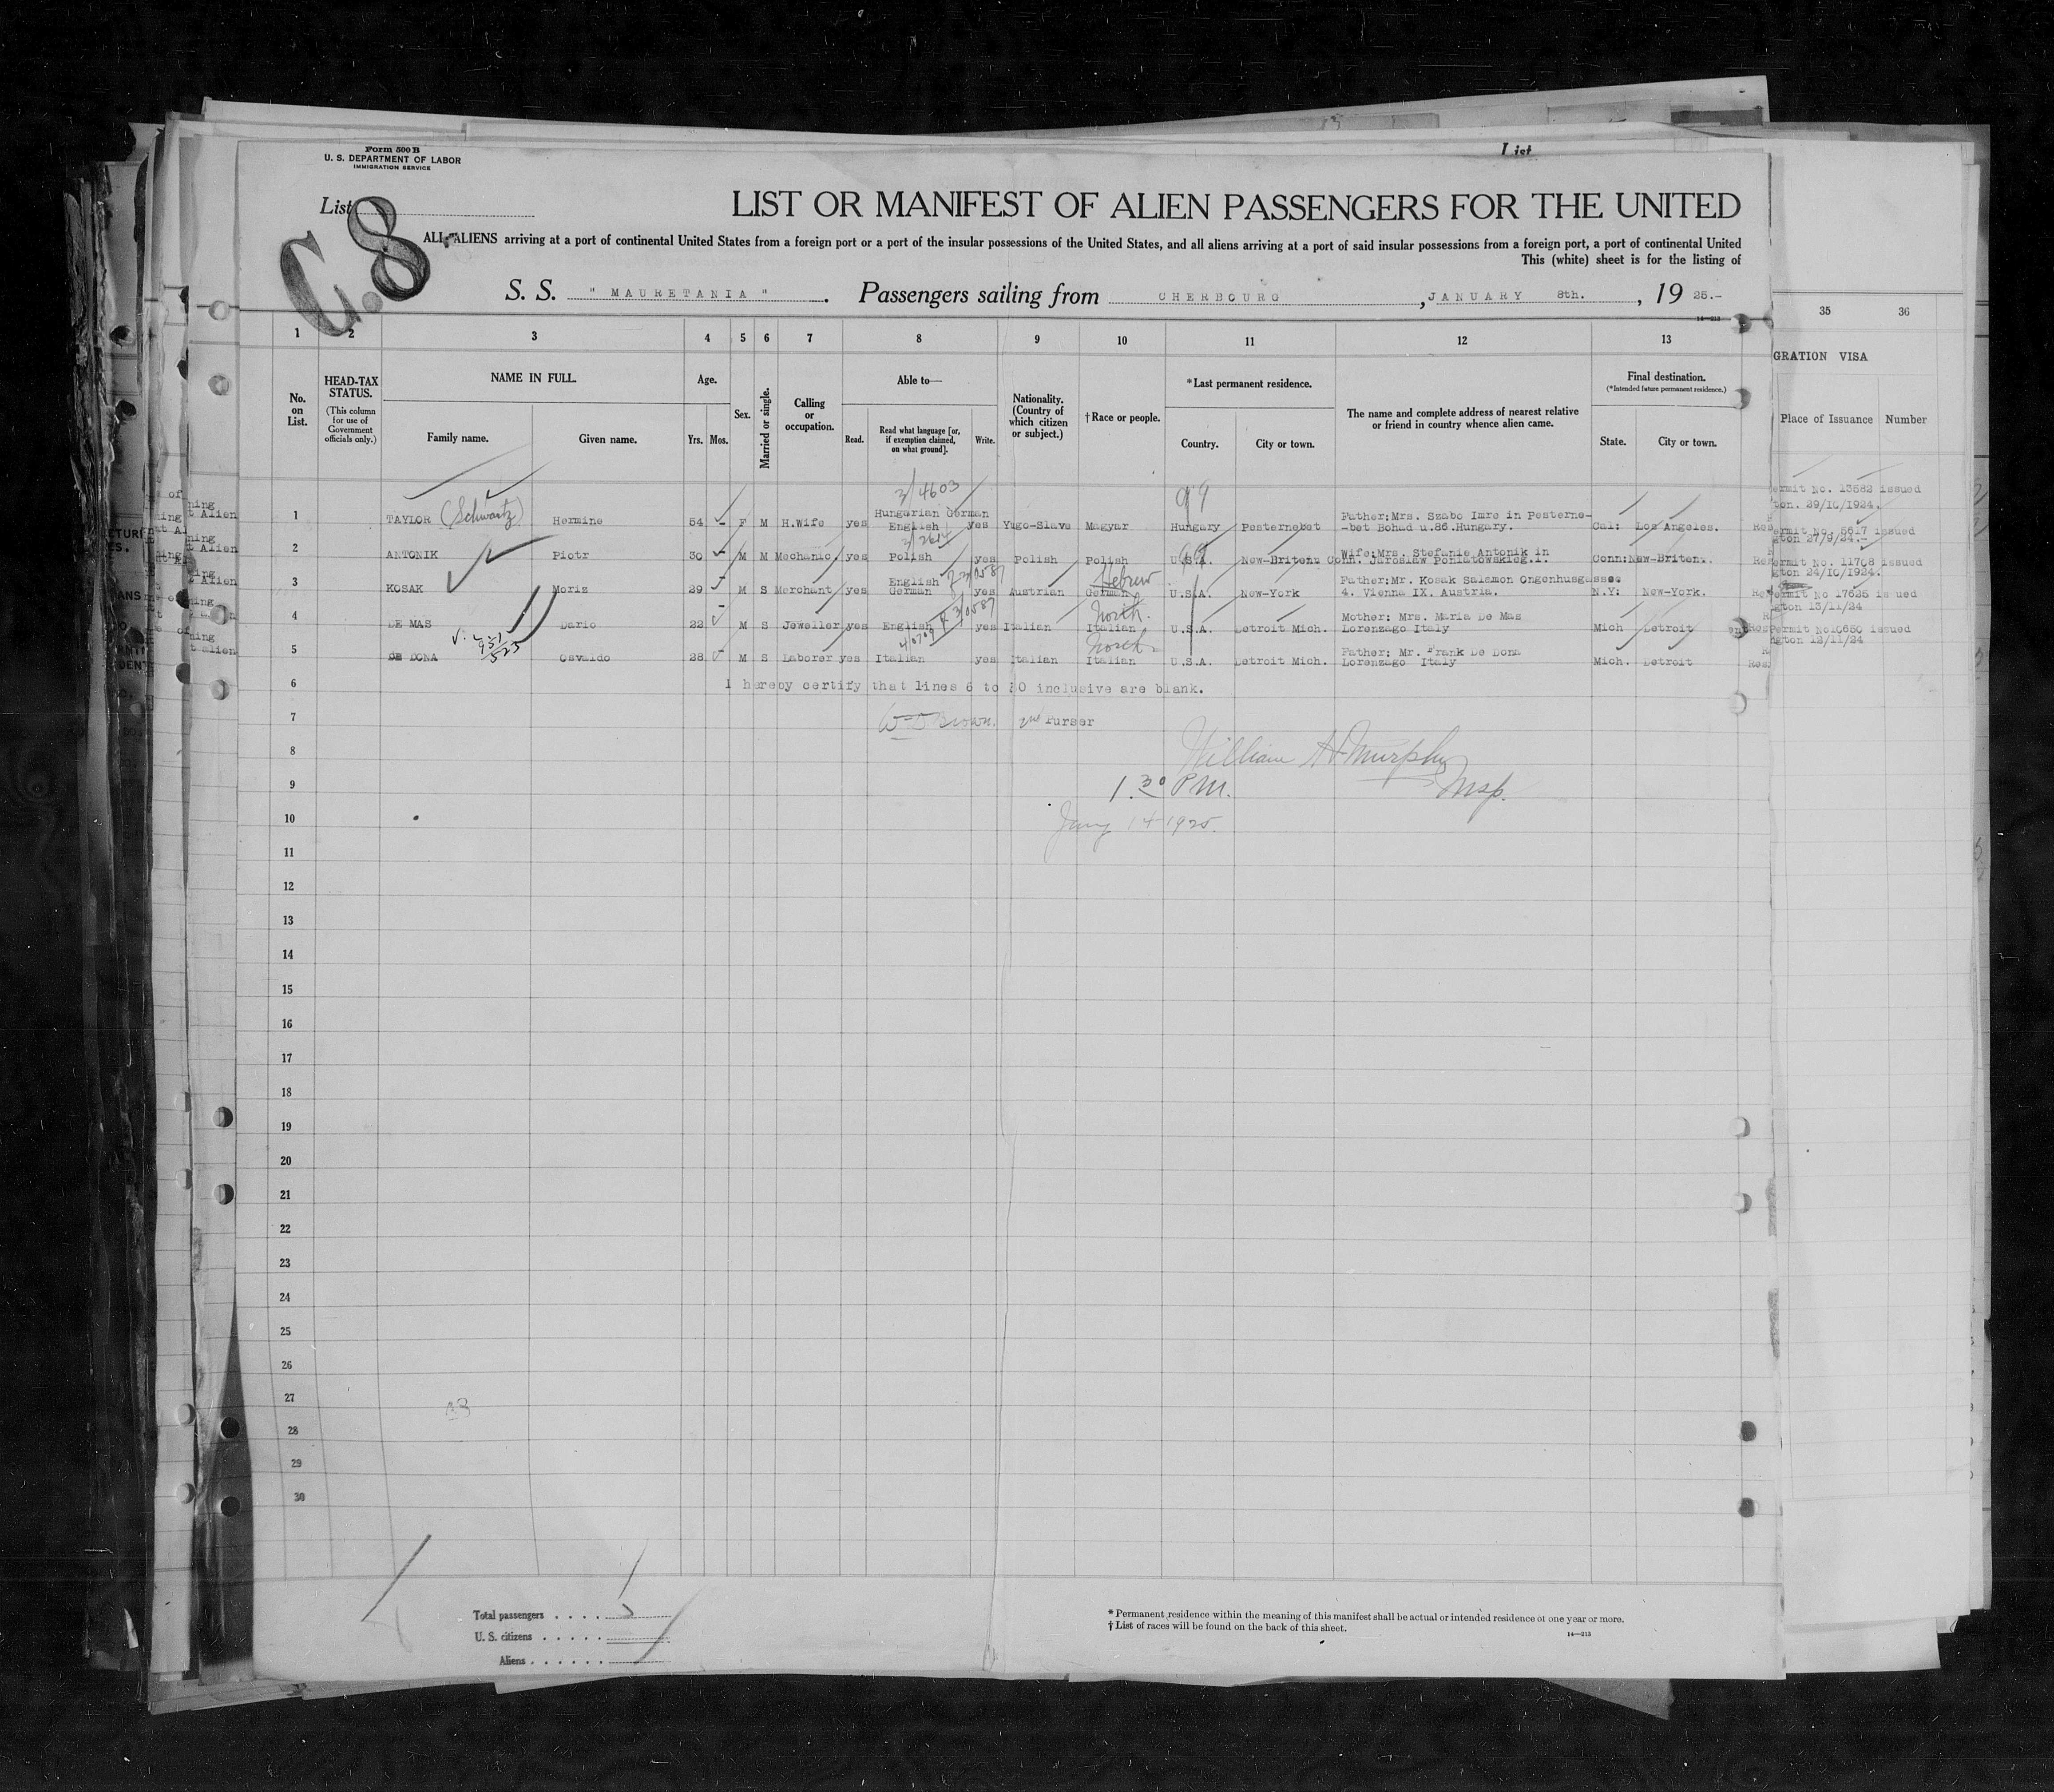 Form 500 B
U. S. DEPARTMENT OF LABOR
IMMIGRATION SERVICE
List
List
C.8
LIST OR MANIFEST OF ALIEN PASSENGERS FOR THE UNITED
ALL ALIENS arriving at a port of continental United States from a foreign port or a port of the insular possessions of the United States, and all aliens arriving at a port of said insular possessions from a foreign port, a port of continental United
This (white) sheet is for the listing of
S. S. " MAURETANIA " . Passengers sailing from CHERBOURG , JANUARY 8th. , 19 25.-
14—213
1 2 3 4 5 6 7 8 9 10 11 12 13 35 36
GRATION VISA
No. on List.
HEAD-TAX STATUS.
(This column for use of Government officials only.)
NAME IN FULL.
Family name. Given name.
Age.
Yrs. Mos.
Sex.
Married or single.
Calling or occupation.
Able to—
Read. Read what language [or, if exemption claimed, on what ground]. Write.
Nationality. (Country of which citizen or subject.)
† Race or people.
* Last permanent residence.
Country. City or town.
The name and complete address of nearest relative or friend in country whence alien came.
Final destination.
(*Intended future permanent residence.)
State. City or town.
Place of Issuance Number
3/4603 99
Hungarian German Father:Mrs. Szabo Imre in Pesterne-
1 TAYLOR (Schwartz) Hermine 54 - F M H.Wife yes English yes Yugo-Slave Magyar Hungary Pesternebet -bet Bohad u.86.Hungary. Cal: Los Angeles.
ermit No. 13582 issued
ton. 29/10/1924.
3/2614 99
Wife:Mrs. Stefanie Antonik in
2 ANTONIK Piotr 30 M M Mechanic. yes Polish yes Polish Polish U.S.A. New-Briten Conn. Jaroslaw Poniatowskieg.1. Conn: New-Briten.
ermit No. 5617 issued
gton 27/9/24.-
English Hebrew Father:Mr. Kosak Salamon Ongenhusgassse
3 KOSAK Moriz 29 M S Merchant yes German yes Austrian German U.S.A. New-York 4. Vienna IX. Austria. N.Y: New-York.
ermit No. 11768 issued
gton 24/10/1924.
North. Mother: Mrs. Maria De Mas
4 DE MAS Dario 22 M S Jeweller yes English yes Italian Italian U.S.A. Detroit Mich. Lorenzago Italy Mich Detroit
ermit No 17625 is ued
gton 13/11/24
North Father; Mr. Frank De Dona
5 DE DONA Osvaldo 28 M S Laborer yes Italian yes Italian Italian U.S.A. Detroit Mich. Lorenzago Italy Mich. Detroit
Permit No10650 issued
gton 12/11/24
6 I hereby certify that lines 6 to 30 inclusive are blank.
7 Brown. Purser
8 William H Murphy
9 1.30 P.M. Insp.
10 Jany 14 1925.
11
12
13
14
15
16
17
18
19
20
21
22
23
24
25
26
27
28
29
30
Total passengers
U. S. citizens
Aliens
* Permanent residence within the meaning of this manifest shall be actual or intended residence of one year or more.
† List of races will be found on the back of this sheet.
14—213